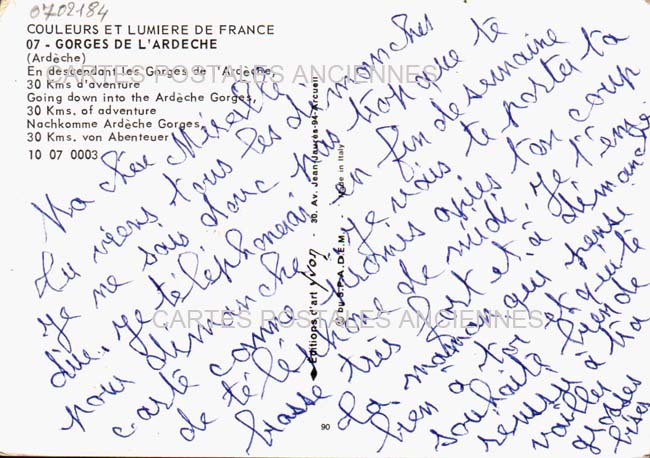 0702184
COULEURS ET LUMIERE DE FRANCE
07 - GORGES DE L'ARDECHE
(Ardèche)
En descendant les Gorges de l'Ardèche,
30 Kms d'aventure
Going down into the Ardèche Gorges,
30 Kms. of adventure
Nachkomme Ardèche Gorges,
30 Kms. von Abenteuer
10 07 0003
CARTES POSTALES ANCIENNES
CARTES POSTALES ANCIENNES
Editions d'art yvon - 30, Av. Jean-Jaurès-94-Arcueil
© by S.P.A.D.E.M. - Made in Italy
90
Ma chère Mireille
Tu viens tous les dimanches
Je ne sais donc pas trop que te
dire. Je téléphonerai en fin de semaine
pour dimanche. Je vais te porter ta
carte comme promis après ton coup
de téléphone de midi. Je t'em
brasse très fort et à dimanche
Ta mamie qui pense
bien à toi et qui te
souhaite bien de
réussir à tra
vailler
grosses
bises